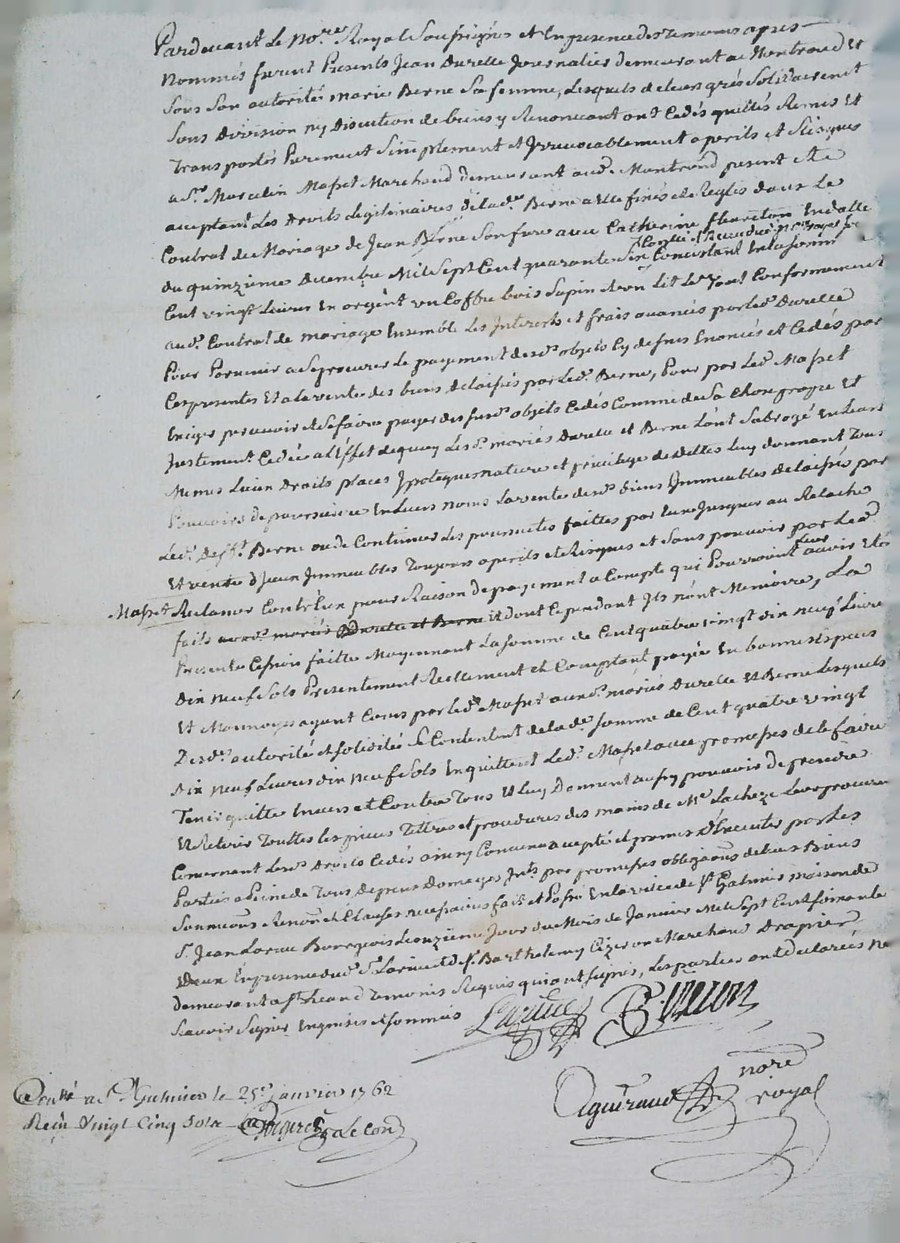 Pardevant Le No.re Royal Soussignés et En presence des temoins apres
Nommés furent Presents Jean Durelle Journalier demeurant a Montrond Et
Sous Son autorité marie Berne Sa femme, Lesquels de leur grés Solidairement
Sans Division ny Discution de biens y Renoncant ont Cedés quittés Remis Et
Transportés Purement Simplement et Irrevocablement a perils et Risques
a S.r Marcelin Masset Marchand demeurant aud. Montrond present Et
acceptant Les Droits Legitimaires de lad.e Berne a Elle finés et Reglés dans Le
Contrat de Mariage de Jean Berne Son frere avec Catherine
du quinzieme Decembre Mil Sept Cent quarante Six Consistant En la Somme
Cent vingt Livres En argent un Coffre bois Sapin et un Lit Le Tout Conformement
aud. Contrat de mariage Ensemble Les Interets et frais avancés par led. Durelle
Pour Parvenir a Se procurer Le payement desd. objets Cy dessus Enoncés et Cedés par
Ces presentes Et a la vente des biens delaissés par led. Berne, Pour par led. Masset
Exiger percevoir et Se faire payer des susd. objets Cedés Comme de Sa Chose propre Et
Justement Cedée a l'Effet de quoy Lesd. mariés Durelle et Berne L'ont Subrogé En Leurs
Memes Lieu Droits places Ypoteques nature et privilege de dettes Luy donnant Tous
Pouvoirs de poursuivre En Leurs noms La vente desd. biens Immeubles delaissés par
Led. Deff.t Berne ou de Continuer Les poursuites faittes par Eux Jusques au Relache
Et vente d'Iceux Immeubles Toujours a perils et Risques et Sans pouvoir par Led.
Masset Reclamer Contr'Eux pour Raison de payement a Compte qui Pourroient Leur avoir Eté
faits aux d. mariés Durelle et Berne Et dont Cependant Ils n'ont Memoire, La
Presente Cession faitte Moyennant La Somme de Cent quatre vingt dix neuf Livres
Dix Neuf Sols Presentement Reellement Et Comptant payée En bonnes Especes
Et Monnoyes ayant Cours par led. Masset auxd. mariés Durelle Et Berne Lesquels
Desd. autorité et Solidité Se Contentent de lad.e Somme de Cent quatre vingt
dix neuf Livres dix neuf Sols En quittent Led. Masset avec promesses de le faire
Tenir quitte Envers et Contre Tous Et Luy Donnent aussy pouvoir de prendre
Et Retirer Touttes les pieces Tittres et procedures des mains de M.e Lacheze Leur procureur
Concernant Lesd. Droits Cedés ainsy Convenu accepté et promis d'Executer par Les
Parties a Peine de Tous Depens Domages Int.s par promesses obligaons de leurs Biens
Soumissions Renon.ons Et Clauses necessaires fait et Passé En la ville de S.t Galmier maison de
S.r Jean Larüe Bourgeois Le onzieme Jour du Mois de Janvier Mil Sept Cent Soixante
deux En presence dud. S.r Larüe et de S.r Barthelemy Cizeron Marchand Drapier
demeurant a S.t heand Temoins Requis qui ont Signés, Les parties ont declarées ne
Savoir Signer Enquises et Sommées
Larüe B. Cizeron
Aguiraud no.re royal
Con.lé a S.t Galmier le 25.e janvier 1762
Reçu Vingt Cinq Sols